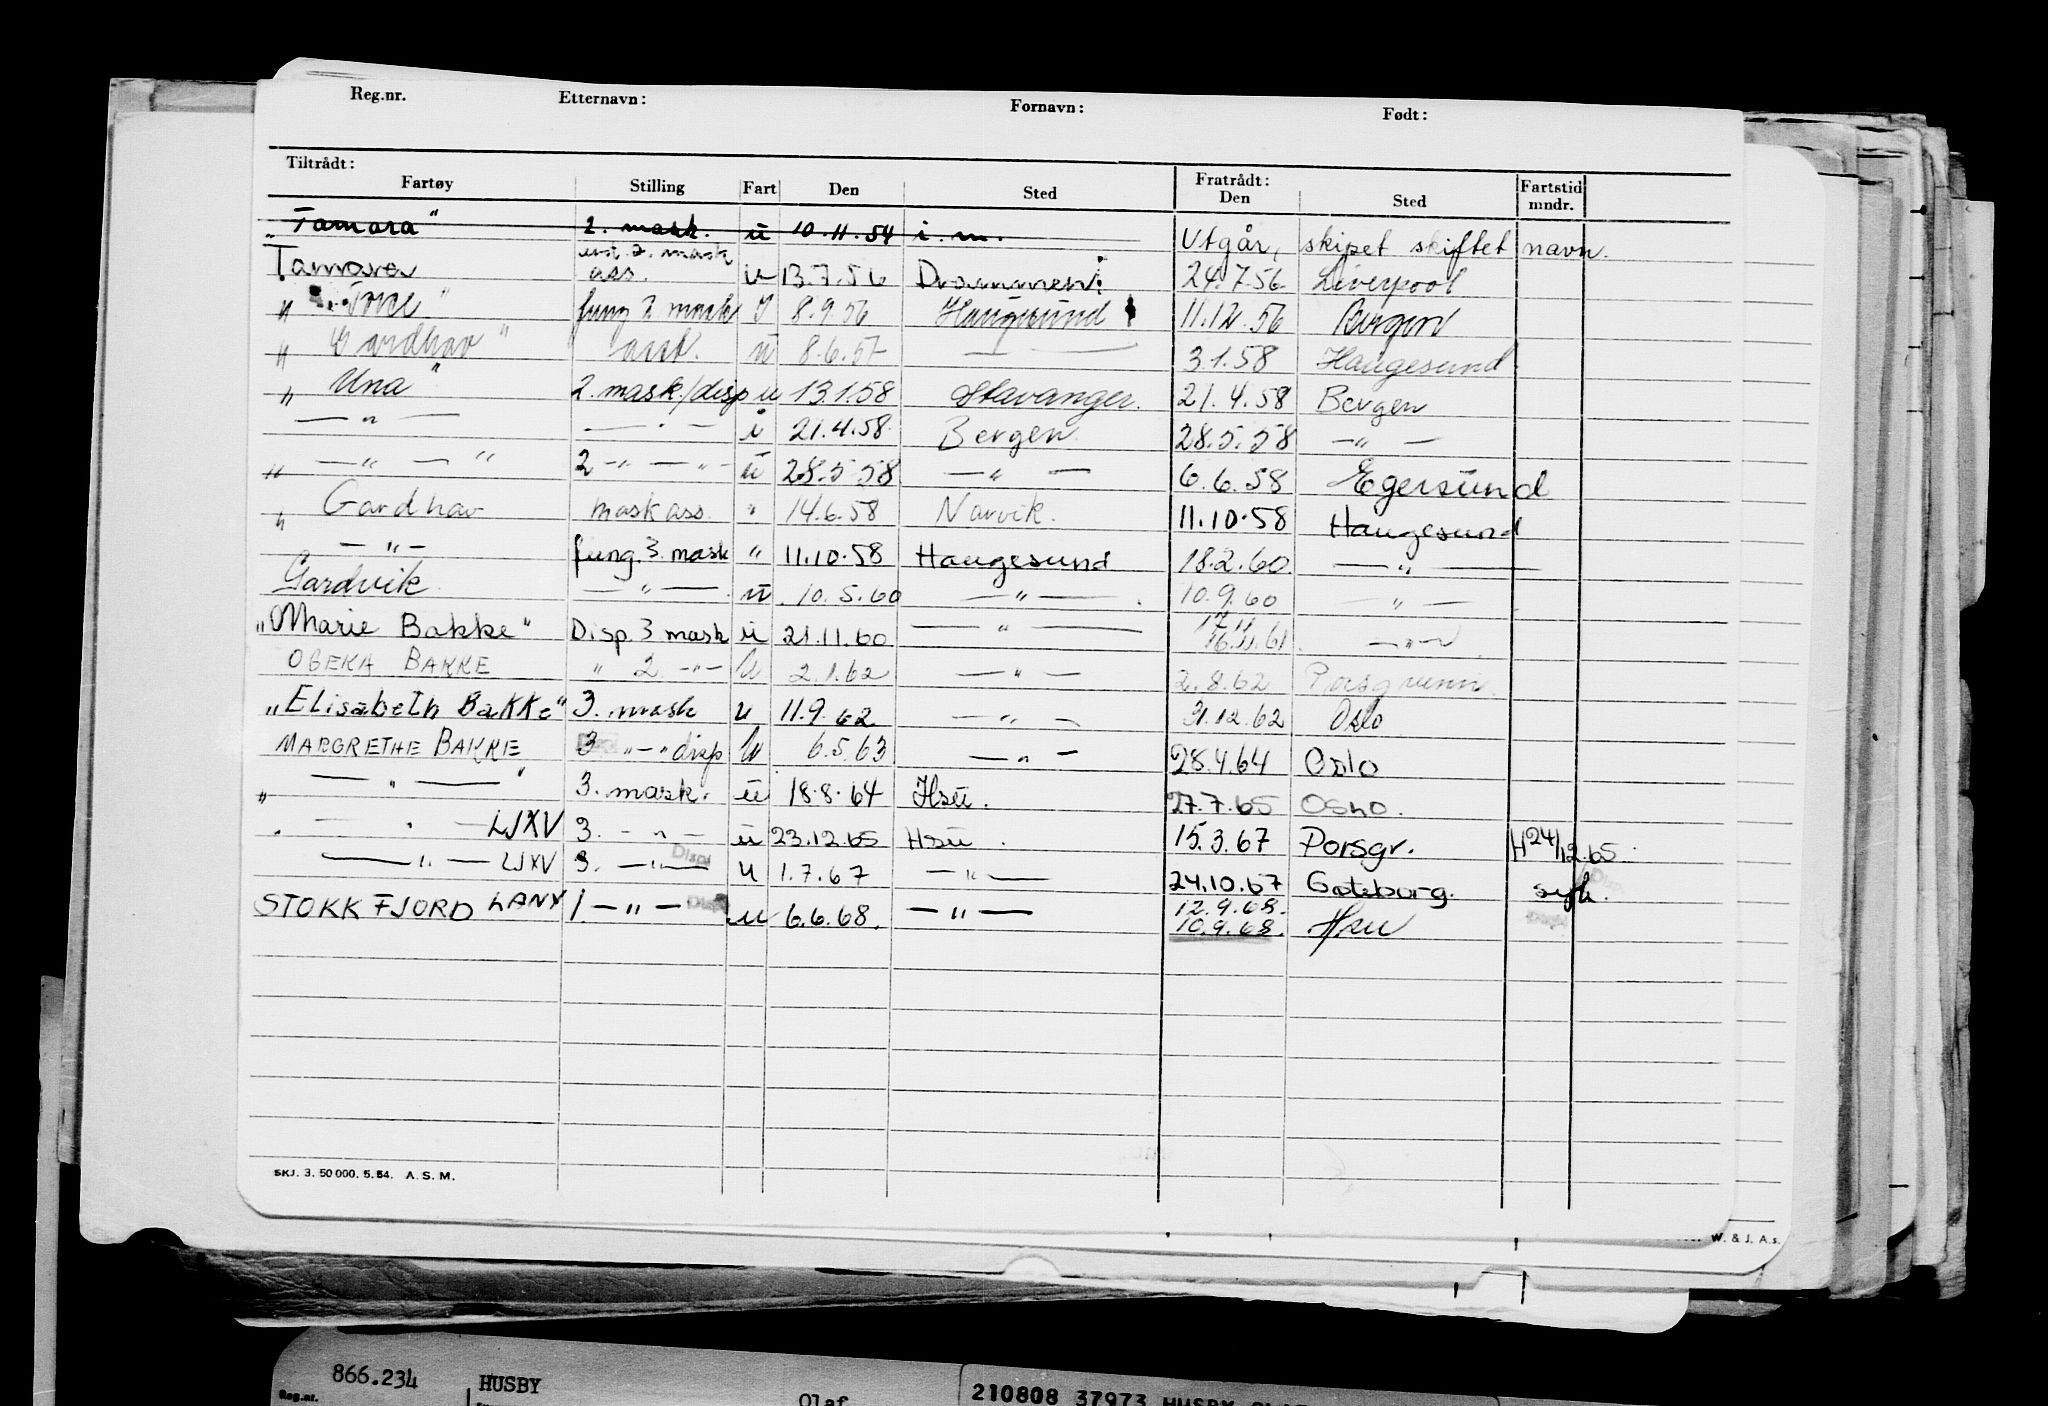 Reg.nr. Etternavn: Fornavn: Født:
Tiltrådt: Fratrådt:
Fartøy Stilling Fart Den Sted Den Sted Fartstid mndr.
"Tamara" 2. mask. u 10.11.54 i.m. Utgår, skipet skiftet navn.
Tamara 2. mask ass. u 13.7.56 Drammen 24.7.56 Liverpool
" fung 2 mask I 8.9.56 Haugesund 11.12.56 Bergen
" Gardhav" u 8.6.57 — 3.1.58 Haugesund
" Una" 2. mask/disp u 13.1.58 Stavanger. 21.4.58 Bergen
—"— —"— i 21.4.58 Bergen 28.5.58 —"—
" —"—" 2 —"—"— u 28.5.58 —"— 6.6.58 Egersund
" Gardhav mask ass. " 14.6.58 Narvik. 11.10.58 Haugesund
—"— fung. 3. mask " 11.10.58 Haugesund 18.2.60 —"—
Gardvik —"— u. 10.5.60 —"—. 10.9.60 —"—
"Marie Bakke" Disp. 3 mask u 21.11.60 —"— 16.11.61. —"—
OGEKA BAKKE " 2 —"— U 2.1.62 —"— 2.8.62 Porsgrunn.
"Elisabeth Bakke" 3. mask u 11.9.62 —"— 31.12.62 Oslo
MARGRETHE BAKKE 3 "—" disp U 6.5.63 —"— 28.4.64 Oslo
—"—" 3. mask. u 18.8.64 Hsu. 27.7.65 OSLO.
" —"— LJXV 3. —"— u 23.12.65 Hsu. 15.3.67 Porsgr. H 24/12.65
—"— LJXV 3. —"— Disp u 1.7.67 —"— 24.10.67 Gøteborg. syk.
STOKKFJORD LANY 1 —"— u 6.6.68. —"— 12.9.68.
10.9.68. Hsu
SKJ. 3. 50 000. 5.54. A. S. M.
W. & J. A.s.
866.234 HUSBY Olaf 210808 37973 HUSBY
Reg.nr.